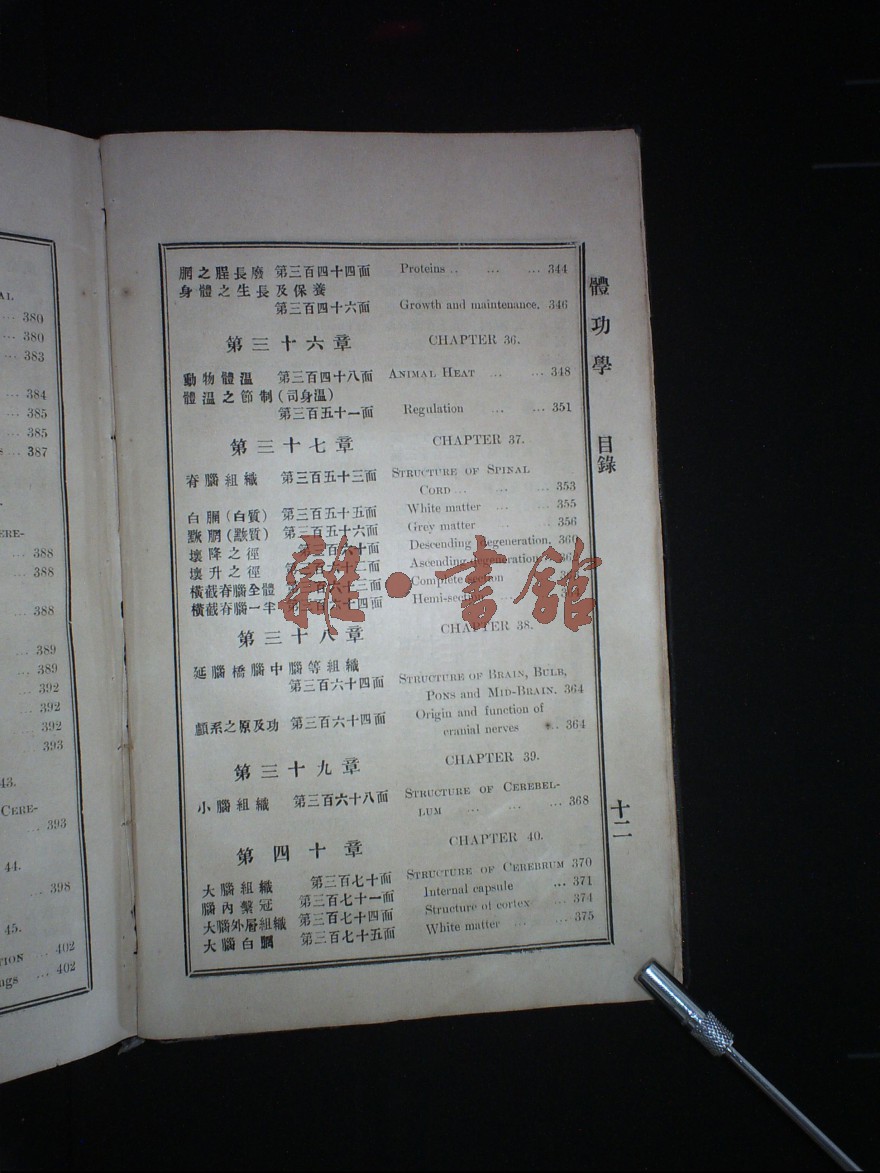 AI.
... 380
... 380
... 383
... 384
... 385
... 385
... 387
ERE-
... 388
... 388
... 388
... 389
... 389
... 392
... 392
... 392
... 393
43.
CERE-
... 393
44.
... 398
45.
TION ... 402
ngs ... 402
體功學
目錄
十二
之 長廢 第三百四十四面 Proteins .. ... ... 344
身體之生長及保養
第三百四十六面 Growth and maintenance. 346
第三十六章 CHAPTER 36.
動物體溫 第三百四十八面 ANIMAL HEAT ... ... 348
體溫之節制(司身溫)
第三百五十一面 Regulation ... ... 351
第三十七章 CHAPTER 37.
脊腦組織 第三百五十三面 STRUCTURE OF SPINAL
CORD ... ... ... 353
白 (白質) 第三百五十五面 White matter ... ... 355
(質) 第三百五十六面 Grey matter .. 356
壞降之徑 第三百六十面 Descending degeneration. 360
壞升之徑 第三百六十二面 Ascending degeneration
橫截脊腦全體 第三百六十三面 Complete section
橫截脊腦一半 第三百六十四面 Hemi-section
雜·書館
第三十八章 CHAPTER 38.
延腦橋腦中腦等組織
第三百六十四面 STRUCTURE OF BRAIN, BULB,
PONS and MID-BRAIN. 364
顱系之原及功 第三百六十四面 Origin and function of
cranial nerves ... 364
第三十九章 CHAPTER 39.
小腦組織 第三百六十八面 STRUCTURE OF CEREBEL-
LUM ... ... ... 368
第四十章 CHAPTER 40.
大腦組織 第三百七十面 STRUCTURE OF CEREBRUM 370
腦內繫冠 第三百七十一面 Internal capsule ... 371
大腦外層組織 第三百七十四面 Structure of cortex ... 374
大腦白 第三百七十五面 White matter ... ... 375